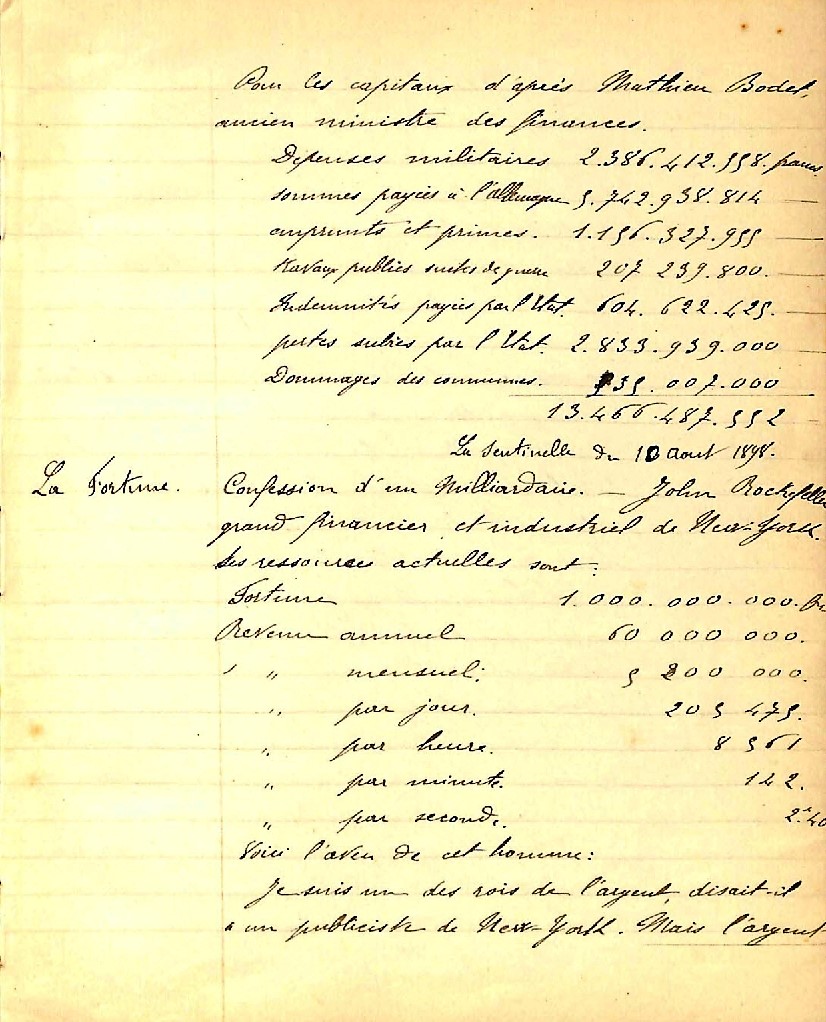 Pour les capitaux d'après Mathieu Bodet,
ancien ministre des finances.
Dépenses militaires 2.386.412.558. francs
sommes payées à l'Allemagne 5.742.938.814 —
emprunts et primes. 1.156.327.955 —
travaux publics suites de guerre 207 239.800. —
Indemnités payées par l'Etat. 604.622.425. —
pertes subies par l'Etat. 2.833.939.000 —
Dommages des communes. 535.007.000
13.466.487.552 —
La Sentinelle du 10 aout 1898.
La Fortune. Confession d'un Milliardaire. — John Rockefeller
grand financier et industriel de New-York.
Ses ressources actuelles sont :
Fortune 1.000.000.000. fr
Revenu annuel 60 000 000.
" " mensuel. 5 200 000.
" par jour. 205 475.
" par heure. 8 561
" par minute. 142.
" par seconde. 2.40
Voici l'aveu de cet homme :
Je suis un des rois de l'argent, disait-il
à un publiciste de New-York. Mais l'argent